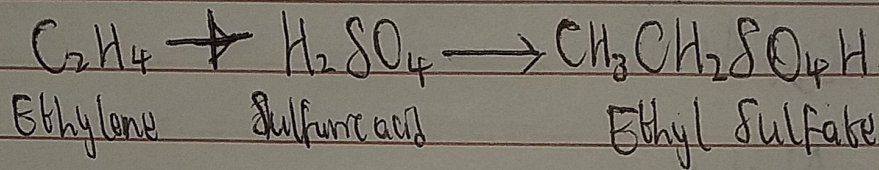 C₂H₄ + H₂SO₄ → CH₃CH₂SO₄H
Ethylene Sulfuric acid Ethyl Sulfate